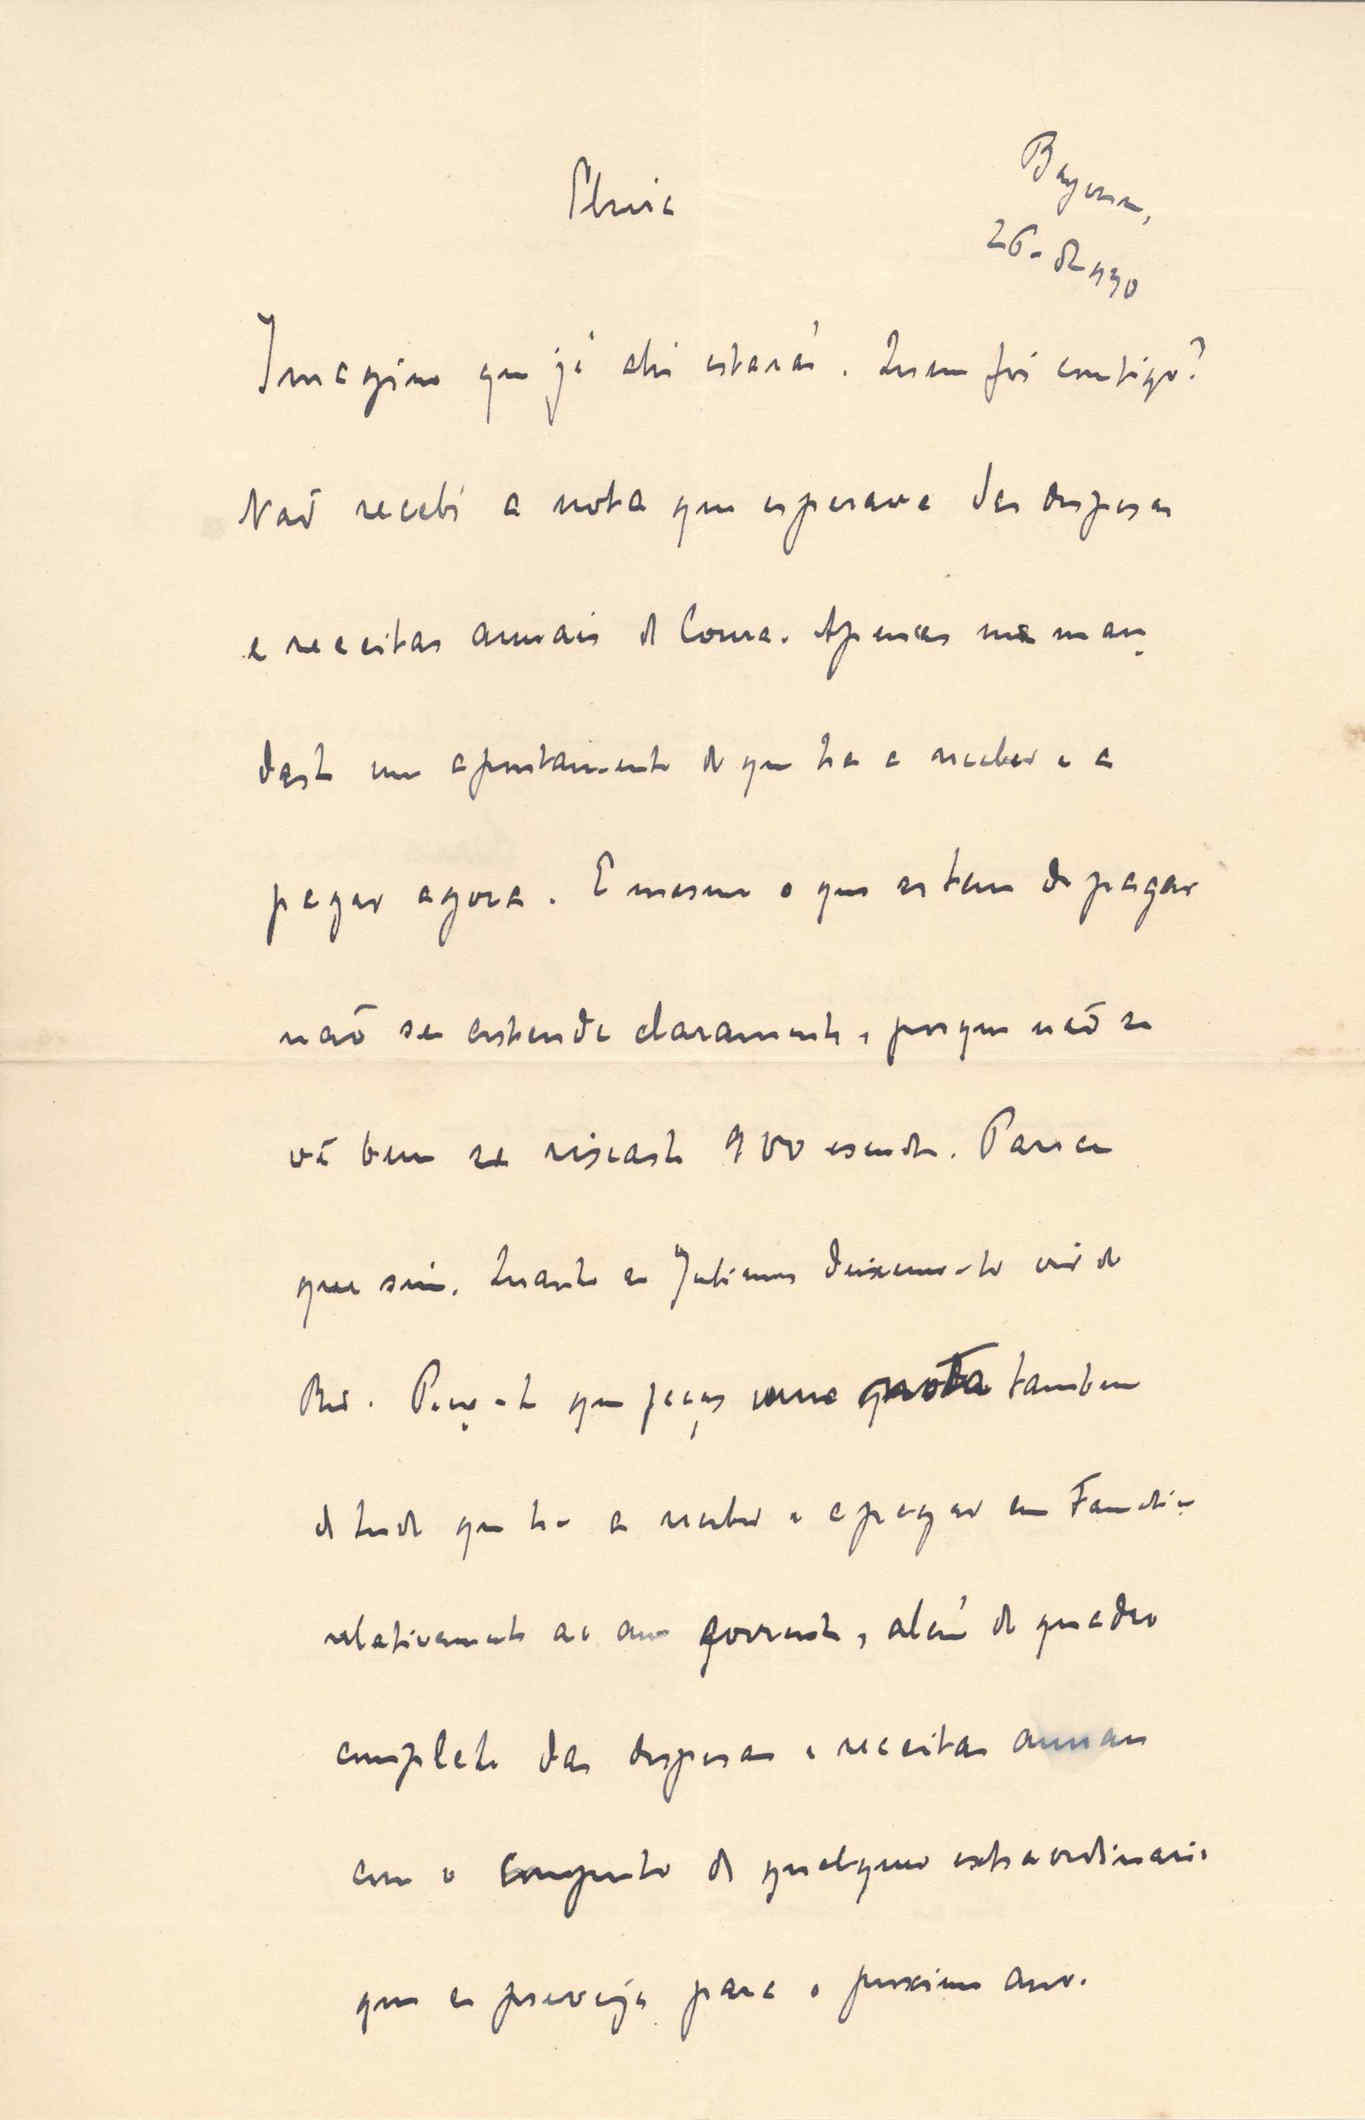 Bayona,
26-8-930
Imagino que já ahi estarás. Quem foi comtigo?
Não recebi a nota que esperava das despesas
e receitas annuais de Coura. Apenas me man-
daste um apontamento do que ha a receber e a
pagar agora. E mesmo o que se tem de pagar
não se entende claramente, porque não se
vê bem se riscaste 900 escudos. Parece
que sim. Quanto a deixemo-lo vir do
Rio. Peço-te que faças uma nota tambem
de tudo que ha a receber e a pagar em
relativamente ao ano corrente, alem do quadro
completo das despesas e receitas annuas
com o computo de qualquer extraordinario
que se preveja para o proximo ano.